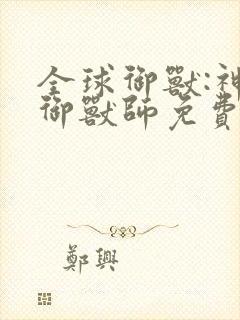 全球御獸:神
御獸師免費
鄭興